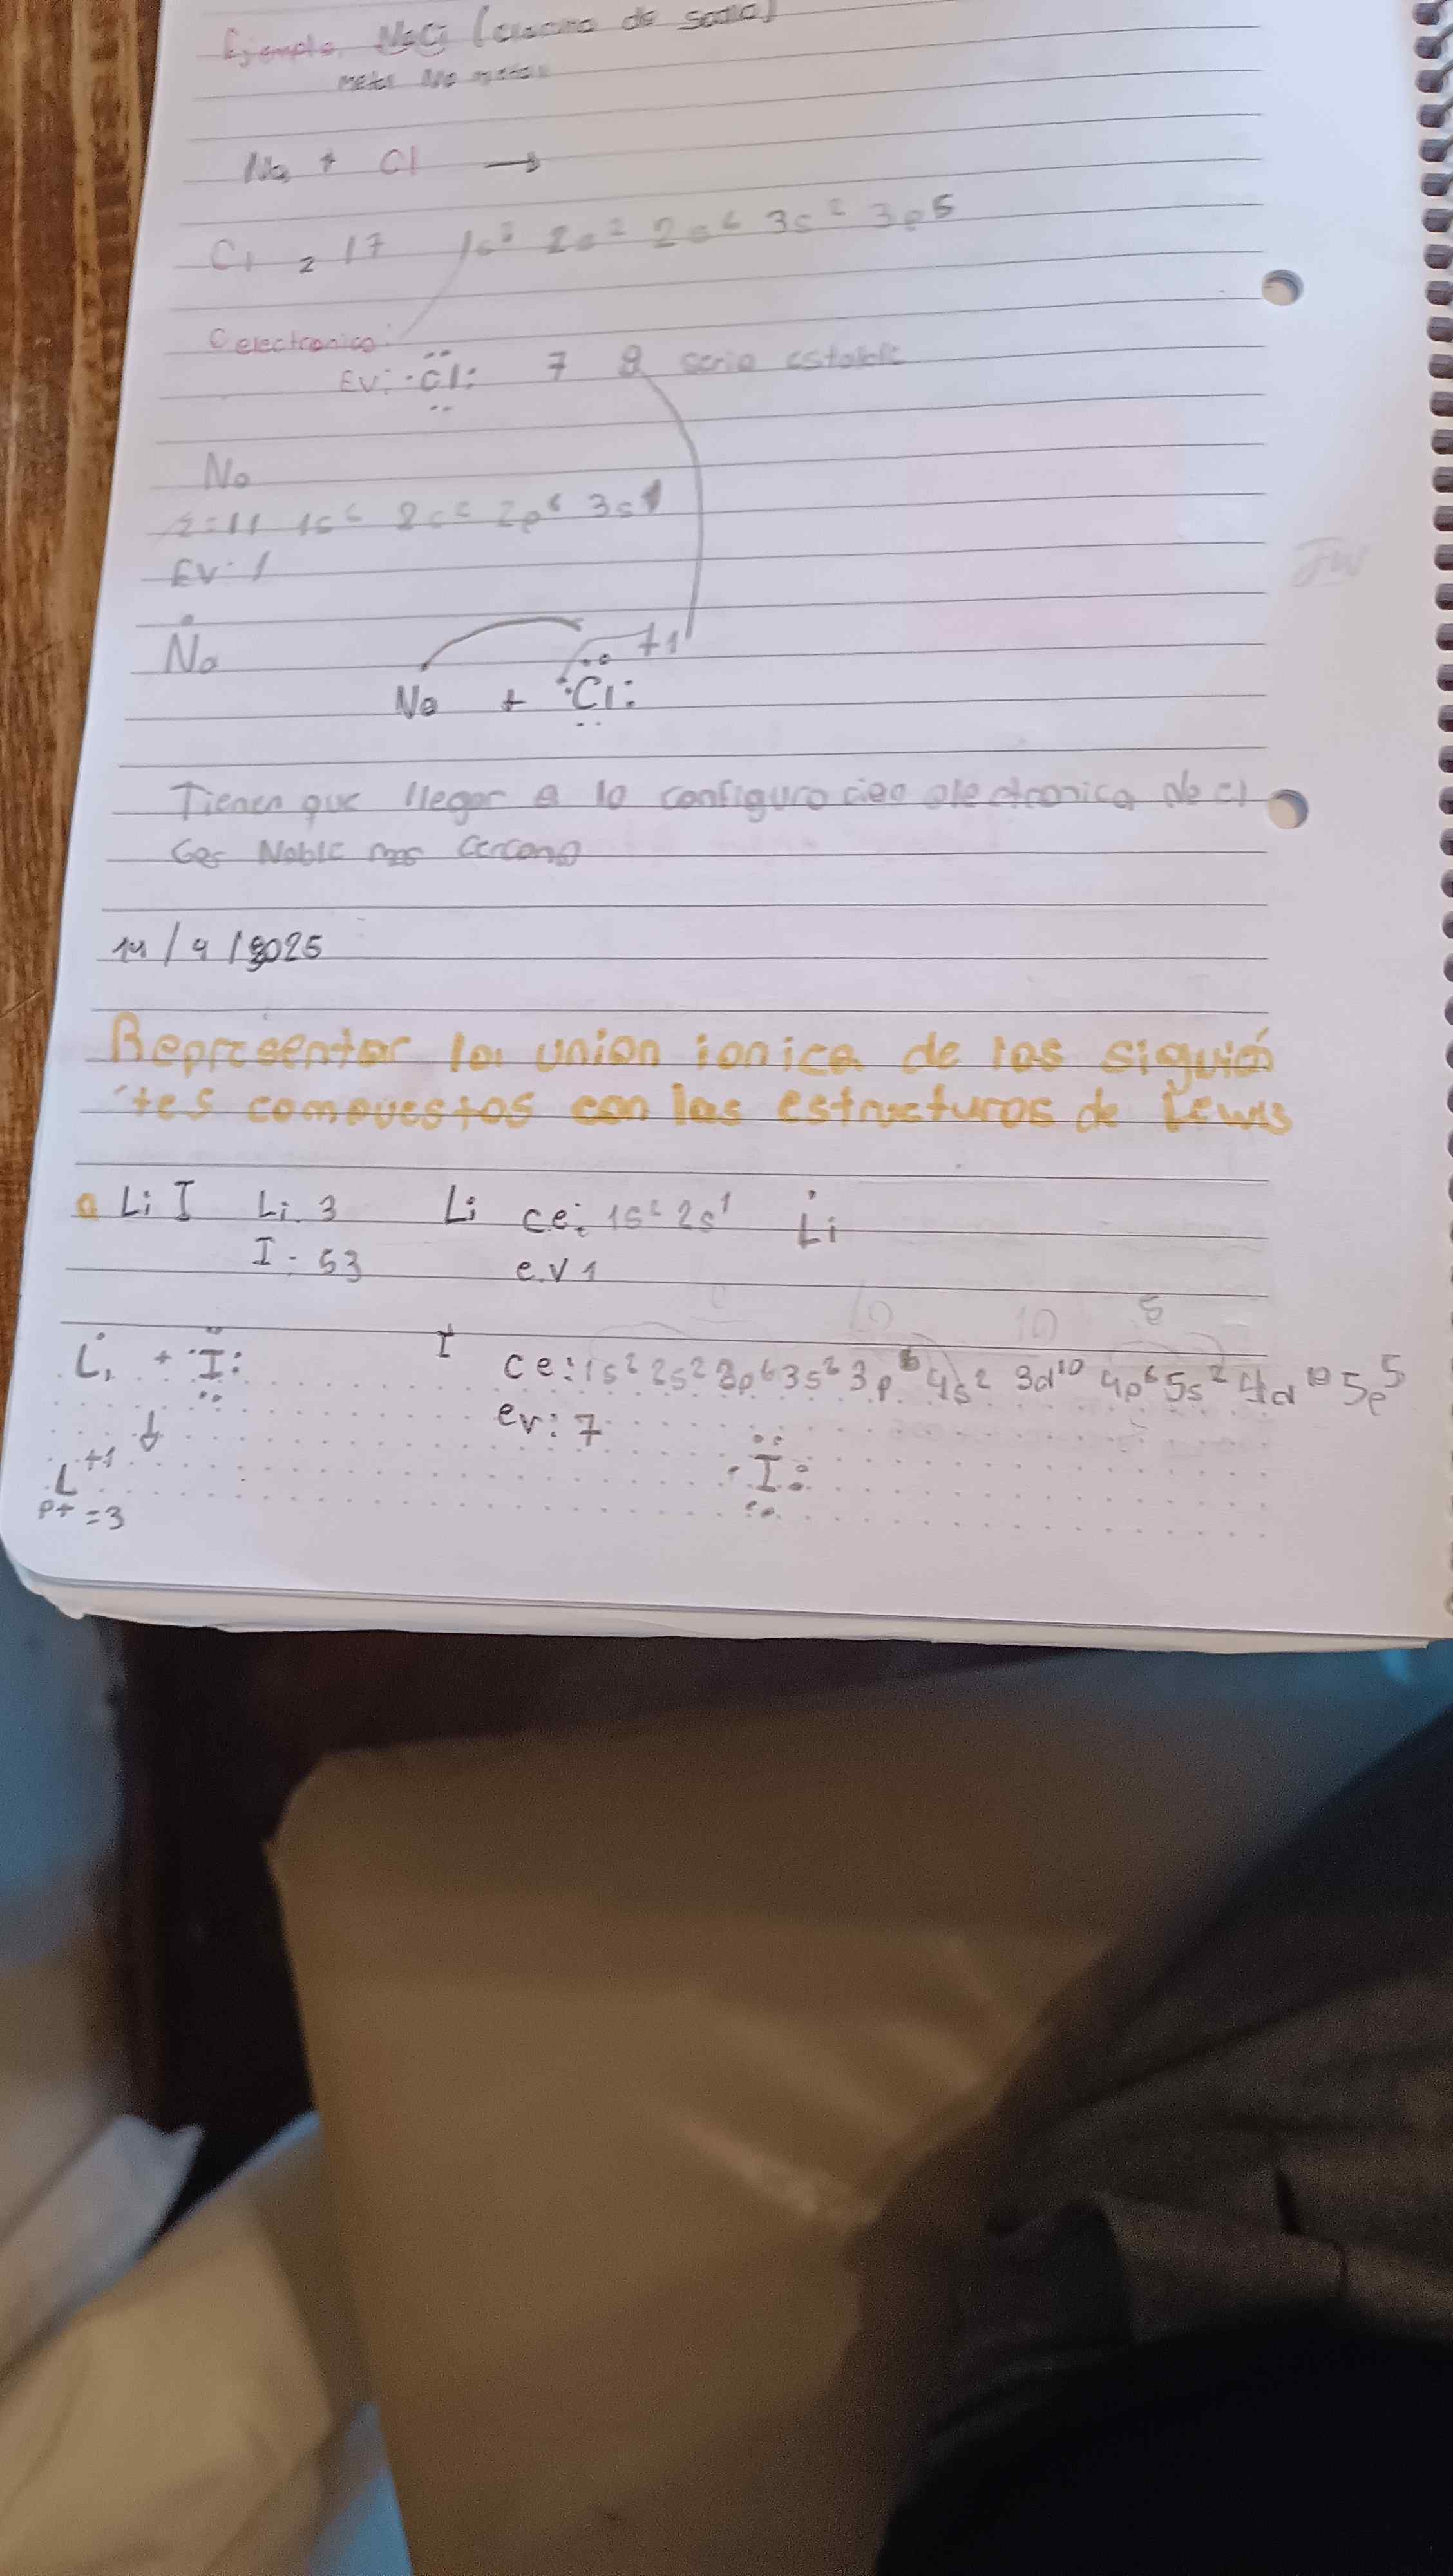 Ejemplo. NaCl (cloruro de sodio)
metal No metal
Na + Cl →
Cl z 17 1s² 2s² 2p⁶ 3s² 3p⁵
C electronica:
EV: Cl: 7 8 seria estable
Na
z=11 1s² 2s² 2p⁶ 3s¹
EV: 1
Na
+1
Na + Cl:
Tienen que llegar a la configuracion electronica del
Gas Noble mas cercano
14/9/2025
Representar la union ionica de los siguien
tes compuestos con las estructuras de Lewis
a Li I Li. 3 Li ce: 1s² 2s¹ Li
I: 53 e.v 1
10 10 8
Li + I: I ce: 1s² 2s² 3p⁶ 3s² 3p⁶ 4s² 3d¹⁰ 4p⁶ 5s² 4d¹⁰ 5p⁵
ev: 7
I:
L⁺¹
p+ = 3